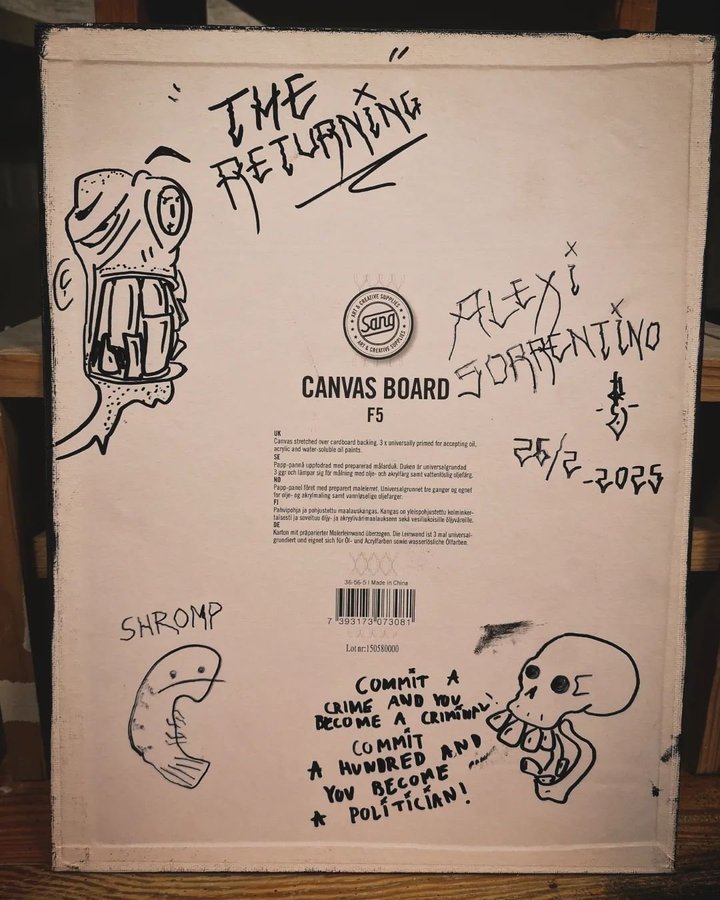 THE
RETURNING
ALEXi
SORRENTiNO
26/2-2025
ART & CREATIVE SUPPLIES
Sang
ART & CREATIVE SUPPLIES
CANVAS BOARD
F5
UK
Canvas stretched over cardboard backing. 3 x universally primed for accepting oil,
acrylic and water-soluble oil paints.
SE
Papp-pannå uppfodrad med preparerad målarduk. Duken är universalgrundad
3 ggr och lämpar sig för målning med olje- och akrylfärg samt vattenlöslig oljefärg.
NO
Papp-panel fôret med preparert malerlerret. Universalgrunnet tre ganger og egnet
for olje- og akrylmaling samt vannløselige oljefarger.
FI
Pahvipohja ja pohjustettu maalauskangas. Kangas on yleispohjustettu kolminker-
taisesti ja soveltuu öljy- ja akryylivärimaalaukseen sekä vesiliukoisille öljyväreille.
DE
Karton mit präparierter Malerleinwand überzogen. Die Leinwand ist 3 mal universal-
grundiert und eignet sich für Öl- und Acrylfarben sowie wasserlösliche Ölfarben.
36-56-5 | Made in China
7 393173 073081
Lot nr:150580000
SHROMP
COMMiT A
CRIME AND YOU
BECOME A CRIMiNAL
COMMiT
A HUNDRED AND
YOU BECOME
A POLiTiCiAN!